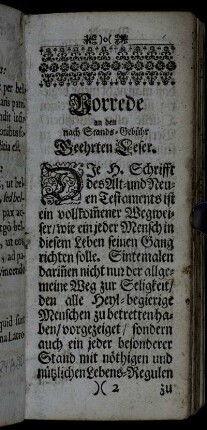 )o(
Vorrede
an den
nach Stands-Gebühr
Geehrten Leser.
DJe H. Schrifft
des Alt- und Neu-
en Testaments ist
ein vollkom̃ener Wegwei-
ser/ wie ein jeder Mensch in
diesem Leben seinen Gang
richten solle. Sintemalen
dariñen nicht nur der allge-
meine Weg zur Seligkeit/
den alle Heyl-begierige
Menschen zu betretten ha-
ben/ vorgezeiget/ sondern
auch ein jeder besonderer
Stand mit nöthigen und
nützlichen Lebens-Regulen
)( 2 zu